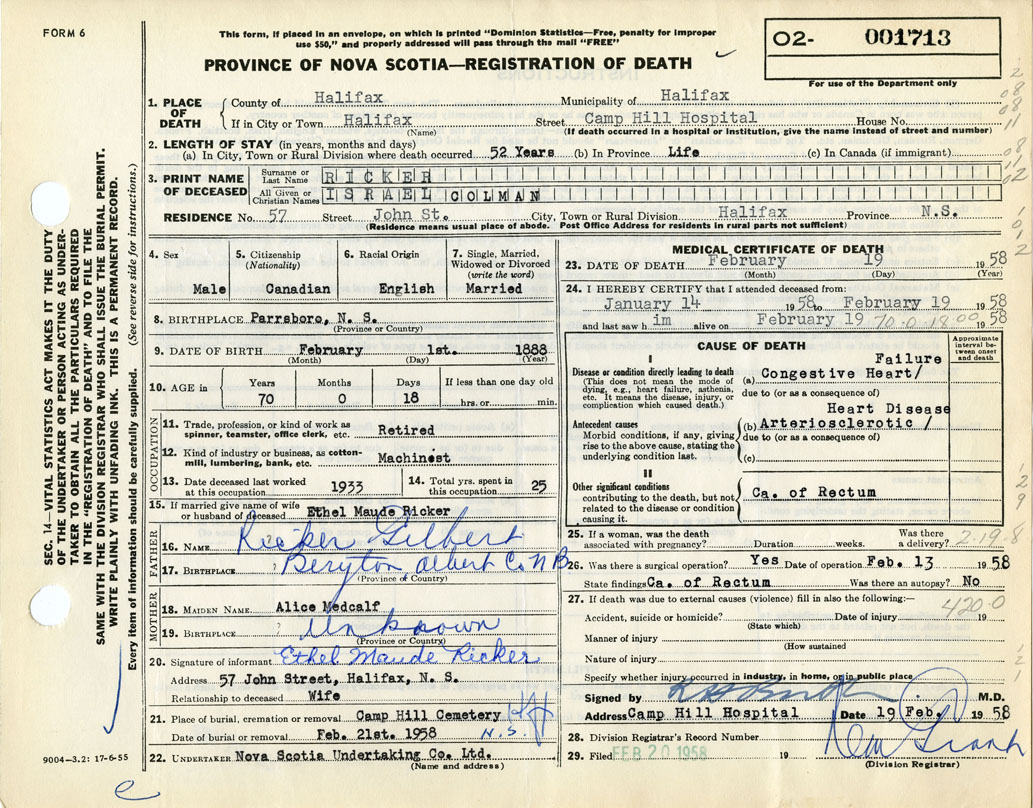 FORM 6
This form, if placed in an envelope, on which is printed "Dominion Statistics—Free, penalty for improper
use $50," and properly addressed will pass through the mail "FREE"
PROVINCE OF NOVA SCOTIA—REGISTRATION OF DEATH
02- 001713
For use of the Department only
1. PLACE OF DEATH County of Halifax Municipality of Halifax
If in City or Town Halifax Street Camp Hill Hospital House No.
(Name) (If death occurred in a hospital or institution, give the name instead of street and number)
2. LENGTH OF STAY (in years, months and days)
(a) In City, Town or Rural Division where death occurred 52 Years (b) In Province Life (c) In Canada (if immigrant)
3. PRINT NAME OF DECEASED Surname or Last Name RICKER
All Given or Christian Names ISRAEL COLMAN
RESIDENCE No. 57 Street John St. City, Town or Rural Division Halifax Province N.S.
(Residence means usual place of abode. Post Office Address for residents in rural parts not sufficient)
4. Sex Male
5. Citizenship (Nationality) Canadian
6. Racial Origin English
7. Single, Married, Widowed or Divorced (write the word) Married
8. BIRTHPLACE Parrsboro, N. S.
(Province or Country)
9. DATE OF BIRTH February 1st. 1888
(Month) (Day) (Year)
10. AGE in Years Months Days If less than one day old
70 0 18 hrs. or min.
OCCUPATION
11. Trade, profession, or kind of work as
spinner, teamster, office clerk, etc. Retired
12. Kind of industry or business, as cotton-
mill, lumbering, bank, etc. Machinist
13. Date deceased last worked
at this occupation 1933
14. Total yrs. spent in
this occupation 25
15. If married give name of wife
or husband of deceased Ethel Maude Ricker
FATHER
16. NAME Ricker Gilbert
17. BIRTHPLACE Beryton Albert Co. N B
(Province or Country)
MOTHER
18. MAIDEN NAME Alice Medcalf
19. BIRTHPLACE ? Unknown
(Province or Country)
20. Signature of informant Ethel Maude Ricker
Address 57 John Street, Halifax, N. S.
Relationship to deceased Wife
21. Place of burial, cremation or removal Camp Hill Cemetery
N.S.
Date of burial or removal Feb. 21st. 1958
22. UNDERTAKER Nova Scotia Undertaking Co. Ltd.
(Name and address)
MEDICAL CERTIFICATE OF DEATH
23. DATE OF DEATH February 19 1958
(Month) (Day) (Year)
24. I HEREBY CERTIFY that I attended deceased from:
January 14 1958 to February 19 1958
and last saw h im alive on February 19 1958
70.0.18.00
CAUSE OF DEATH
Approximate interval between onset and death
I
Disease or condition directly leading to death
(This does not mean the mode of
dying, e.g., heart failure, asthenia,
etc. It means the disease, injury, or
complication which caused death.)
Failure
(a) Congestive Heart/
due to (or as a consequence of)
Antecedent causes
Morbid conditions, if any, giving
rise to the above cause, stating the
underlying condition last.
Heart Disease
(b) Arteriosclerotic /
due to (or as a consequence of)
(c)
II
Other significant conditions
contributing to the death, but not
related to the disease or condition
causing it.
Ca. of Rectum
25. If a woman, was the death
associated with pregnancy? Duration weeks. Was there
a delivery?
2-19-8
26. Was there a surgical operation? Yes Date of operation Feb. 13 1958
State findings Ca. of Rectum Was there an autopsy? No
27. If death was due to external causes (violence) fill in also the following:—
420.0
Accident, suicide or homicide? Date of injury 19
(State which)
Manner of injury
(How sustained
Nature of injury
Specify whether injury occurred in industry, in home, or in public place
Signed by M.D.
Address Camp Hill Hospital Date 19 Feb. 1958
28. Division Registrar's Record Number
29. Filed FEB 20 1958 19
(Division Registrar)
SEC. 14—VITAL STATISTICS ACT MAKES IT THE DUTY
OF THE UNDERTAKER OR PERSON ACTING AS UNDER-
TAKER TO OBTAIN ALL THE PARTICULARS REQUIRED
IN THE "REGISTRATION OF DEATH" AND TO FILE THE
SAME WITH THE DIVISION REGISTRAR WHO SHALL ISSUE THE BURIAL PERMIT.
WRITE PLAINLY WITH UNFADING INK. THIS IS A PERMANENT RECORD.
Every item of information should be carefully supplied. (See reverse side for instructions.)
9004—3.2: 17-6-55